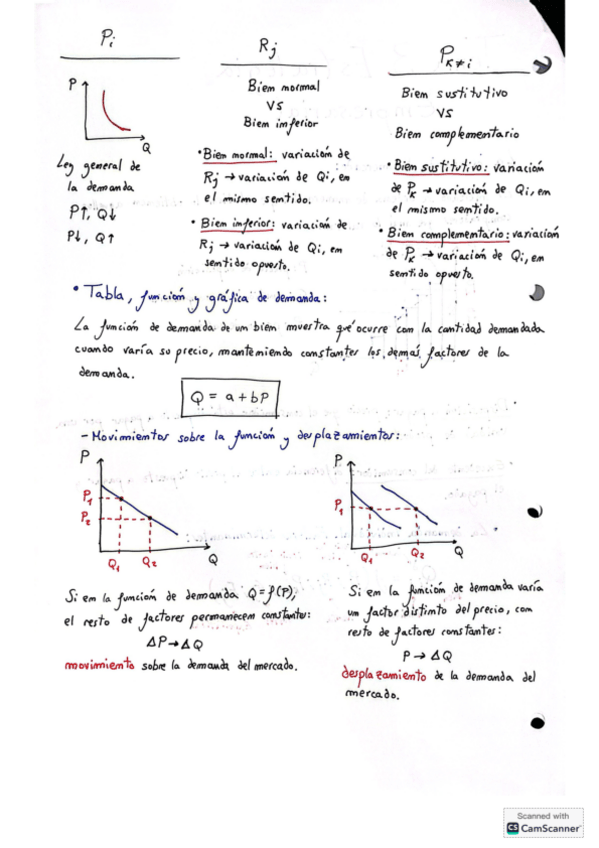 Pi
Rj
Pk≠i
P
Q
Ley general de
la demanda
P↑, Q↓
P↓, Q↑
Bien normal
VS
Bien inferior
• Bien normal: variación de
Rj → variación de Qi, en
el mismo sentido.
• Bien inferior: variación de
Rj → variación de Qi, en
sentido opuesto.
Bien sustitutivo
VS
Bien complementario
• Bien sustitutivo: variación
de Pk → variación de Qi, en
el mismo sentido.
• Bien complementario: variación
de Pk → variación de Qi, en
sentido opuesto.
• Tabla, función y gráfica de demanda:
La función de demanda de un bien muestra qué ocurre con la cantidad demandada
cuando varía su precio, manteniendo constantes los demás factores de la
demanda.
Q = a + bP
- Movimientos sobre la función y desplazamientos:
P
P1
P2
Q1
Q2
Q
P
P1
Q1
Q2
Q
Si en la función de demanda Q = f(P),
el resto de factores permanecen constantes:
ΔP → ΔQ
movimiento sobre la demanda del mercado.
Si en la función de demanda varía
un factor distinto del precio, con
resto de factores constantes:
P → ΔQ
desplazamiento de la demanda del
mercado.
Scanned with
CS CamScanner